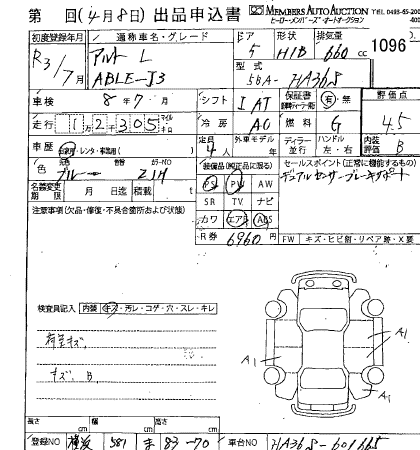 第 回(4月8日) 出品申込書 MEMBERS AUTO AUCTION
ヒーロー・メンバーズ・オートオークション
初度登録年月 通称車名・グレード ドア 形状 排気量
R3/7月 アルト L 5 H/B 660cc 1096
ABLE-J3 型式 5BA-HA36S
車検 8年7月 シフト IAT 保証書 有・無 評価点
走行 12305 キロ 冷房 AC 燃料 G 4.5
車歴 自家用・レンタ・業務用 定員 4人 外車モデル ディーラー 並行 ハンドル 左・右 内装 B
色 ブルー カラーNO Z1H 装備品(純正に限る) セールスポイント(正常に機能するもの)
名義変更期限 月 日迄 積載 PS PW AW デュアルセンサーブレーキサポート
注意事項(欠品・修復・不具合箇所および状態) SR TV ナビ
カワ エアB ABS
R券 6960円 FW キズ・ヒビ割・リペア跡・X要
検査員記入 内装 キズ・汚レ・コゲ・穴・スレ・キレ
荷室キズ
キズ、B
A1 A1 A1
長さ cm 幅 cm 高さ cm
登録NO 横浜 581 ま 83-70 車台NO HA36S-601665